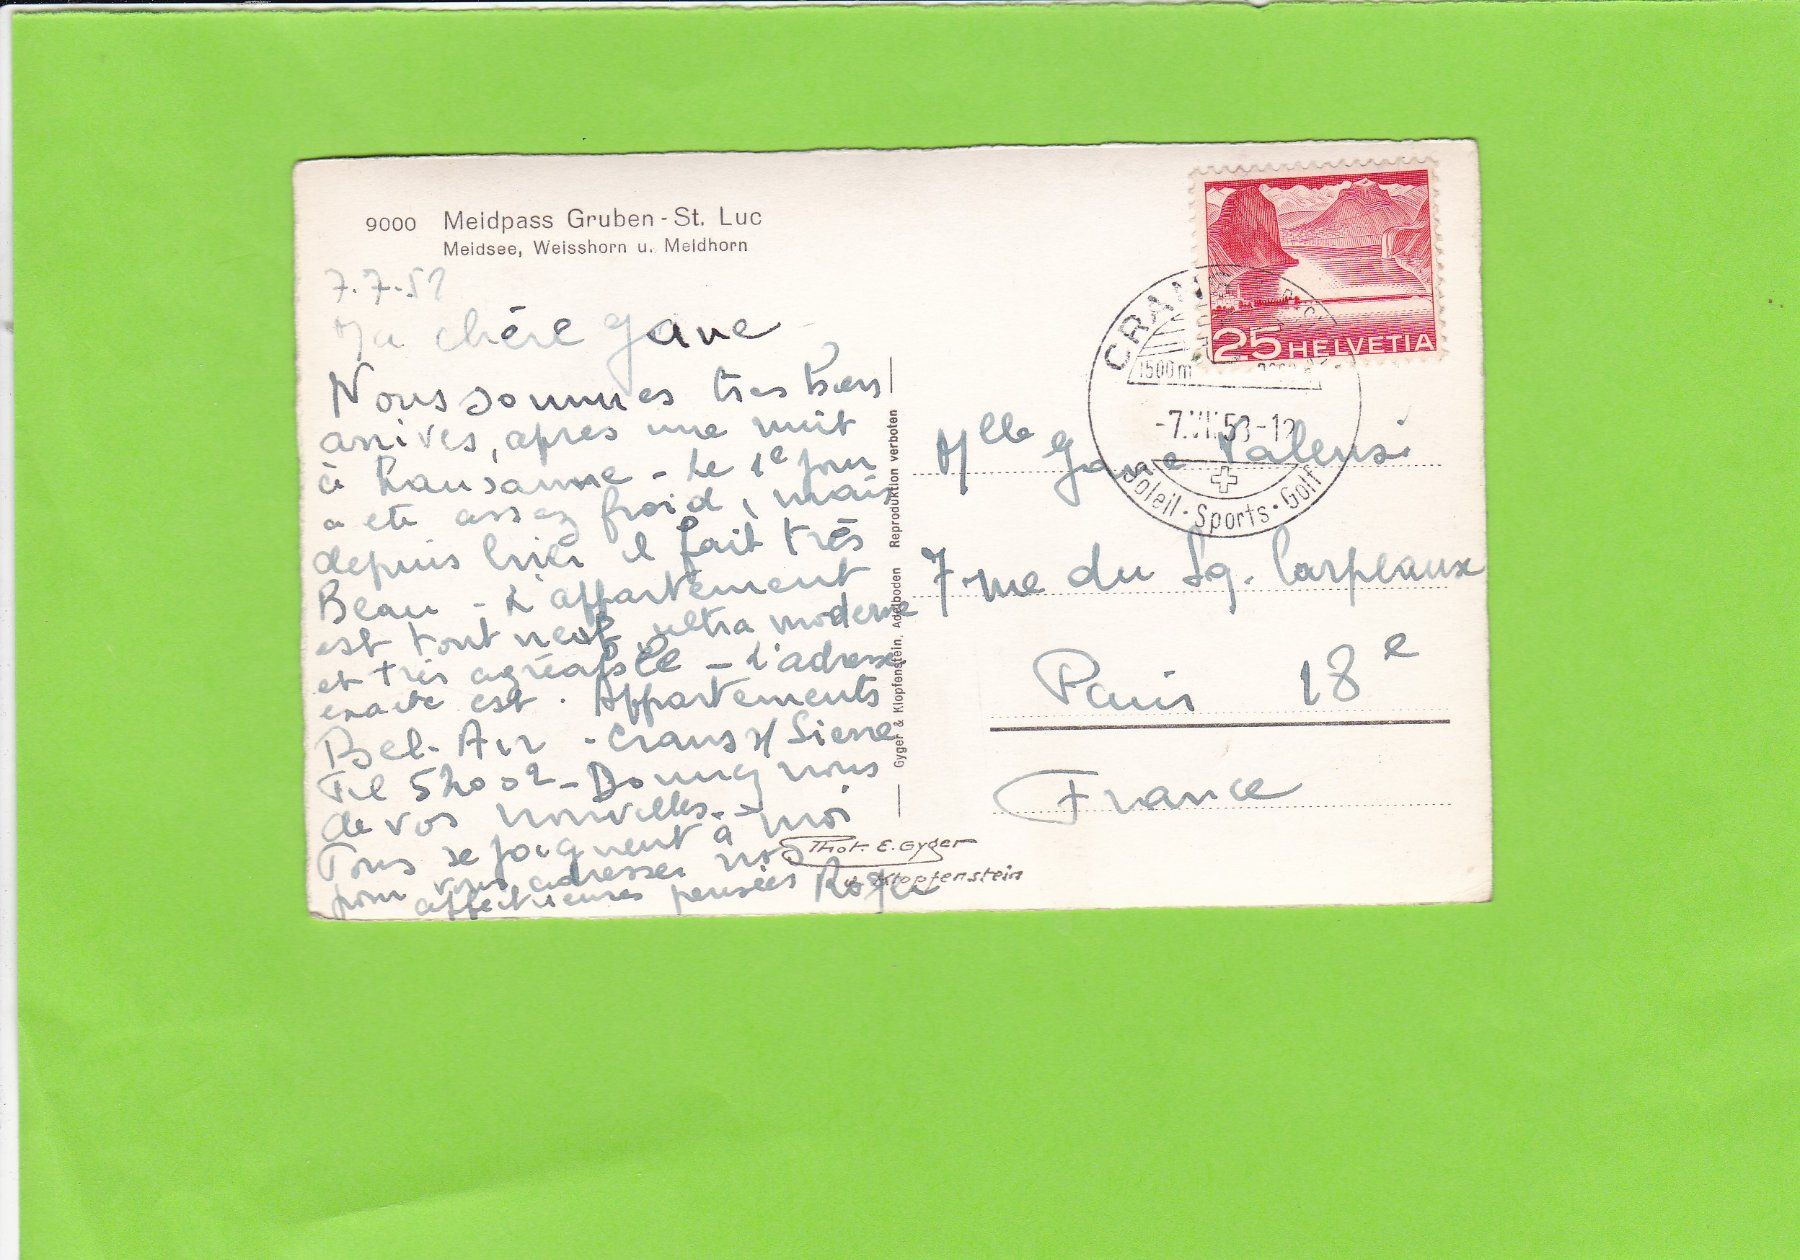 9000 Meidpass Gruben - St. Luc
Meidsee, Weisshorn u. Meidhorn
Ma chère Gane
Nous sommes très bien
arrivés, après une nuit
à Lausanne - Le 1e jour
a été assez froid, mais
depuis hier il fait très
Beau - L'appartement
est tout neuf, ultra moderne
et très agréable - L'adresse
exacte est. Appartements
Bel-Air - Crans s/ Sierre
Tel 52002 - Donnez nous
de vos nouvelles -
Tous se joignent à moi
pour vous adresser nos
affectueuses pensées Roger
Gyger & Klopfenstein, Adelboden Reproduktion verboten
Phot. E. Gyger
u. Klopfenstein
25 HELVETIA
CRANS
1500 m
Soleil · Sports · Golf
Mlle Gane Valensi
7 rue du Sq. Carpeaux
Paris 18e
France